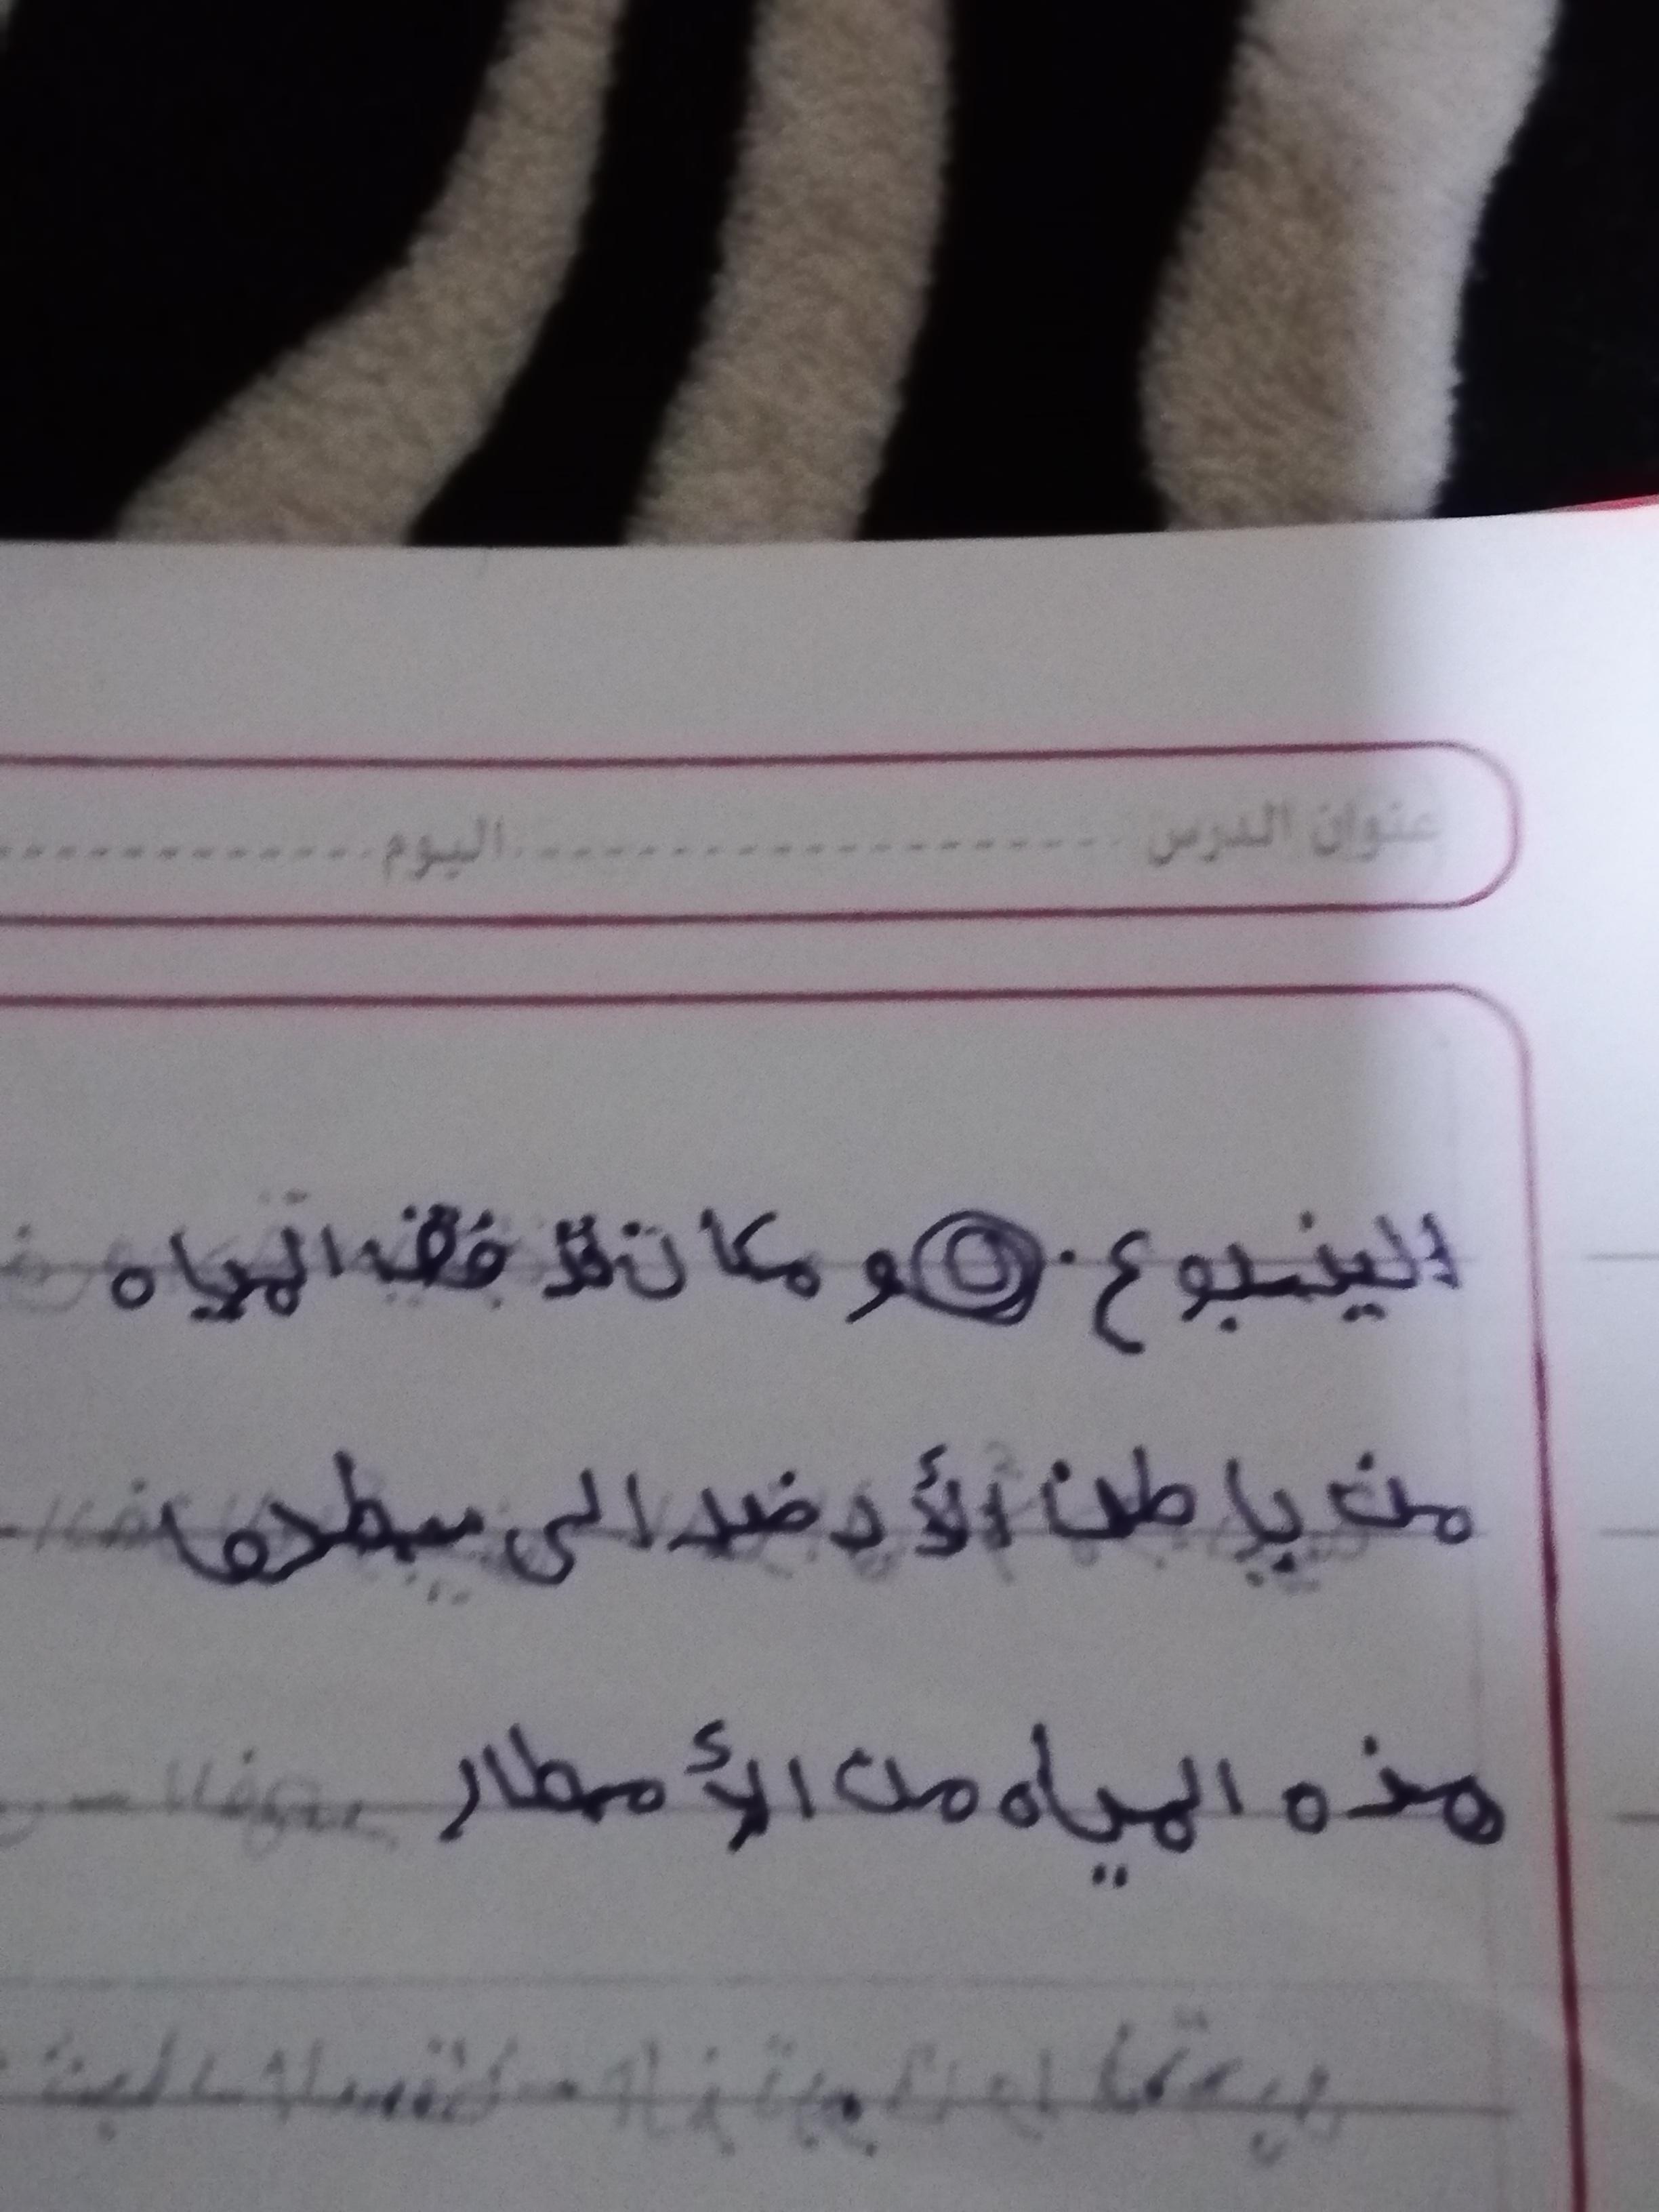 عنوان الدرس ................ اليوم ................
الينبوع . و مكان تدفق المياه
من باطن الأرض الى سطحها
هذه المياه من الأمطار